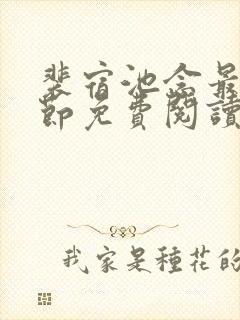 裴宿池念最
節免費閱讀
我家是種花的